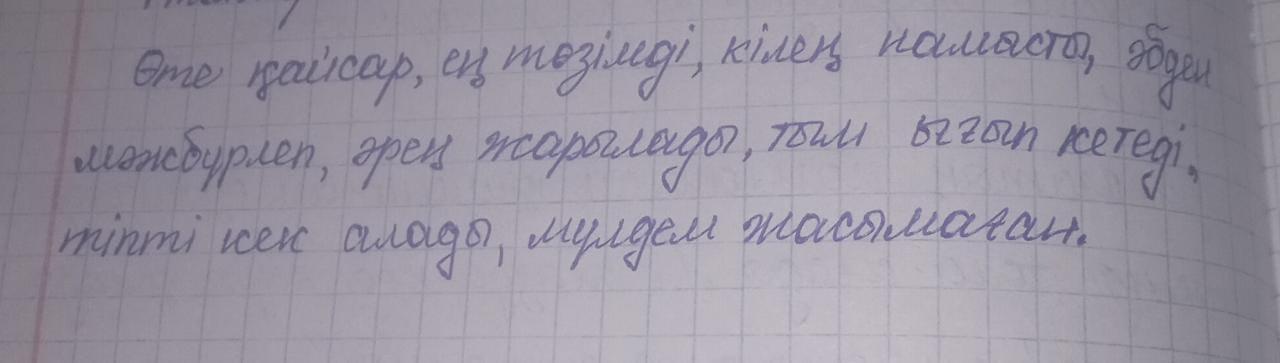 Өте қайсар, ең төзімді, кілең намысты, әбден
мәжбүрлеп, әрең жарылады, тым ығып кетеді,
тіпті кек алады, мүлдем жасымаған.